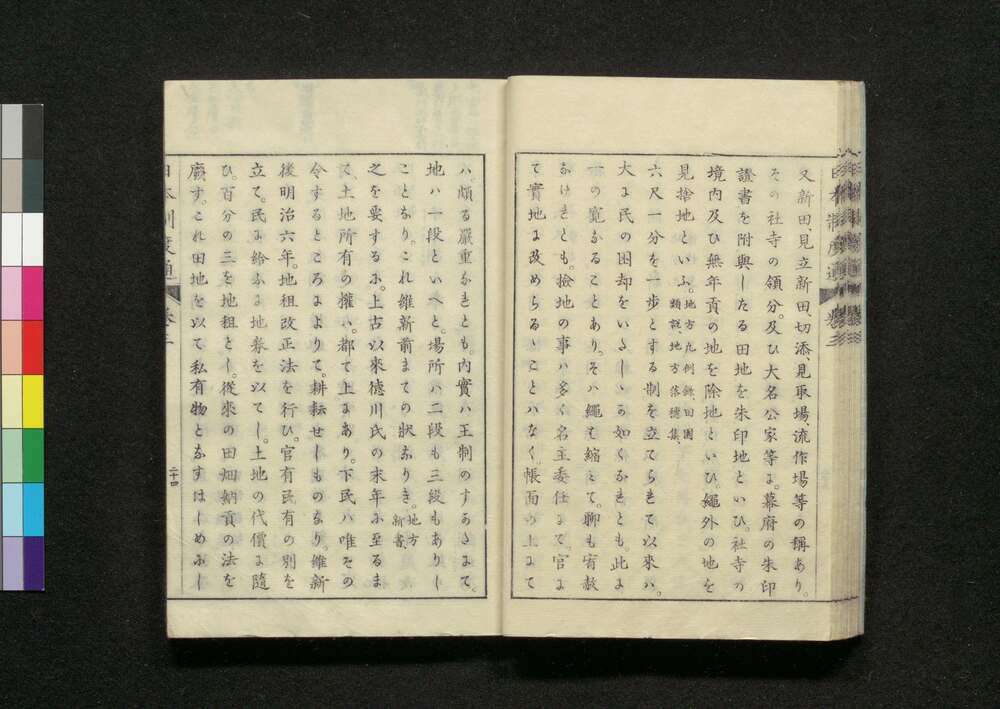 又新田、見立新田、切添、見取場、流作場等の稱あり。
その社寺の領分。及ひ大名公家等に。幕府の朱印
證書を附與したる田地を朱印地といひ。社寺の
境内及ひ無年貢の地を除地といひ。繩外の地を
見捨地といふ。地方凡例錄田園
類説、地方落穗集、
六尺一分を一歩とする制を立てられて以來ハ。
大に民の困却をいたしゝか如くなれとも。此に
一の寛なることあり。そハ繩も縮みて。聊も宥赦
なけれとも。撿地の事ハ多く名主委任にて。官よ
て實地に改めらるゝことハなく。帳面の上にて
ハ。頗る嚴重なれとも。内實ハ王制のすかたにて。
地ハ一段といへと。場所ハ二段も三段もありし
ことなり。これ維新前まての狀なりき。地方
新書、
之を要するに。上古以來德川氏の末年に至るま
て、土地所有の權ハ。都て上にあり。下民ハ唯その
令するところによりて。耕耘せしものなり。維新
後明治六年。地租改正法を行ひ。官有民有の別を
立て。民に給ふに地券を以てし。土地の代價に隨
ひ。百分の三を地租とし。從來の田畑納貢の法を
廢す。これ田地を以て私有物となすはしめふし
日本制度通
卷二
二十四